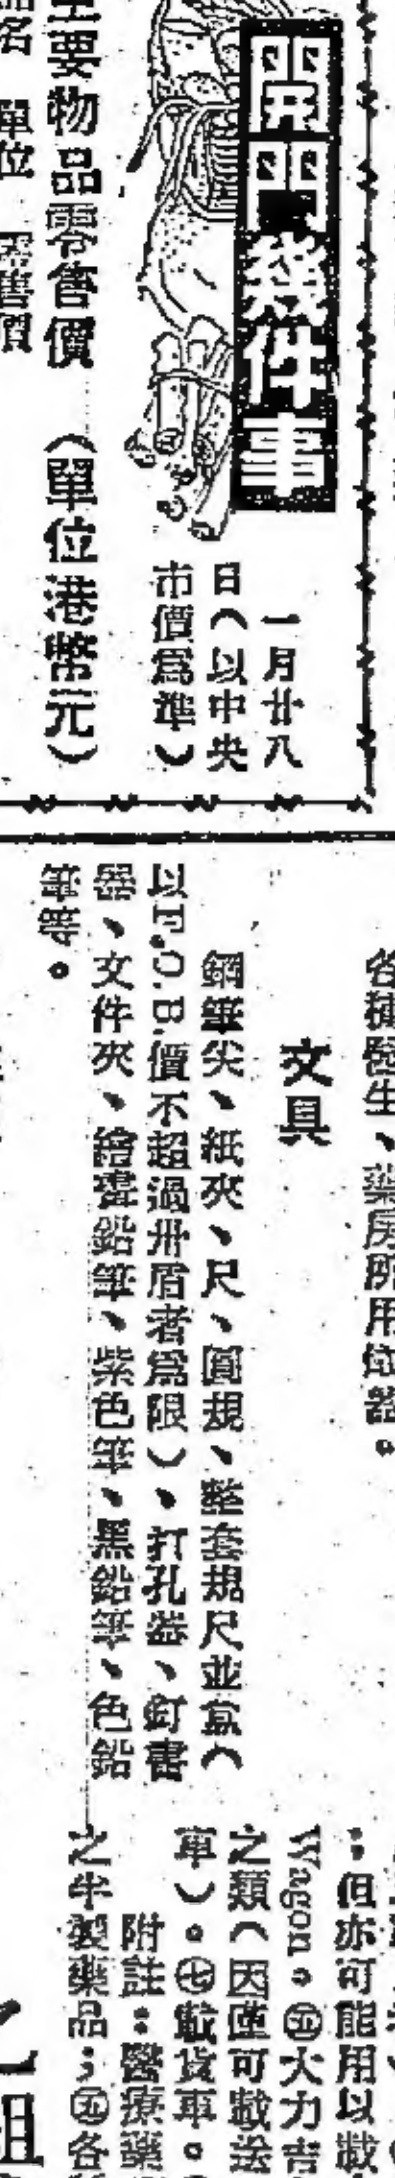 開門幾件事
一月廿八
日（以中央
市價爲準）
主要物品零售價　（單位港幣元）
品名　單位　零售價
各種醫生、藥房所用儀器。
文具
鋼筆尖、紙夾、尺、圓規、整套規尺並盒（
以F.O.B.價不超過卅盾者爲限）、打孔器、釘書
器、文件夾、繪畫鉛筆、紫色筆、黑鉛筆、色鉛
筆等。
；但亦可能用以載
Wagon。㊄大力吉
之類（因僅可載送
車）。㊆載貨車。
附註：醫療藥
之半製藥品；㊄各